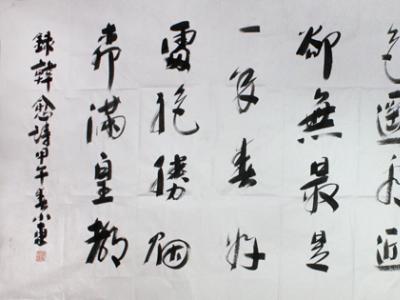 色遥看近
卻無最是
一年春好
處絕勝烟
柳滿皇都
錄韓愈詩甲午春小東